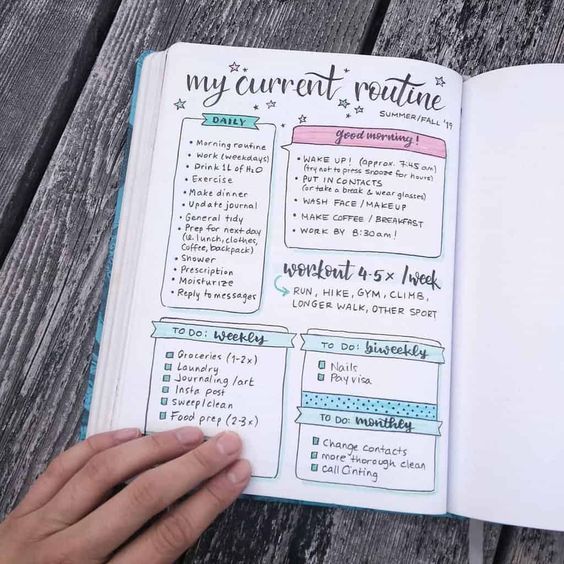 my current routine
SUMMER/FALL '19
DAILY
Morning routine
Work (weekdays)
Drink 1L of H2O
Exercise
Make dinner
Update journal
General tidy
Prep for next day
(ie. lunch, clothes,
coffee, backpack)
Shower
Prescription
Moisturize
Reply to messages
good morning!
WAKE UP! (approx. 7:45 am)
(try not to press snooze for hours)
PUT IN CONTACTS
(or take a break & wear glasses)
WASH FACE / MAKEUP
MAKE COFFEE / BREAKFAST
WORK BY 8:30am!
workout 4-5x /week
RUN, HIKE, GYM, CLIMB,
LONGER WALK, OTHER SPORT
TO DO: weekly
Groceries (1-2x)
Laundry
Journaling /art
Insta post
sweep/clean
Food prep (2-3x)
TO DO: biweekly
Nails
Pay visa
TO DO: monthly
Change contacts
more thorough clean
call